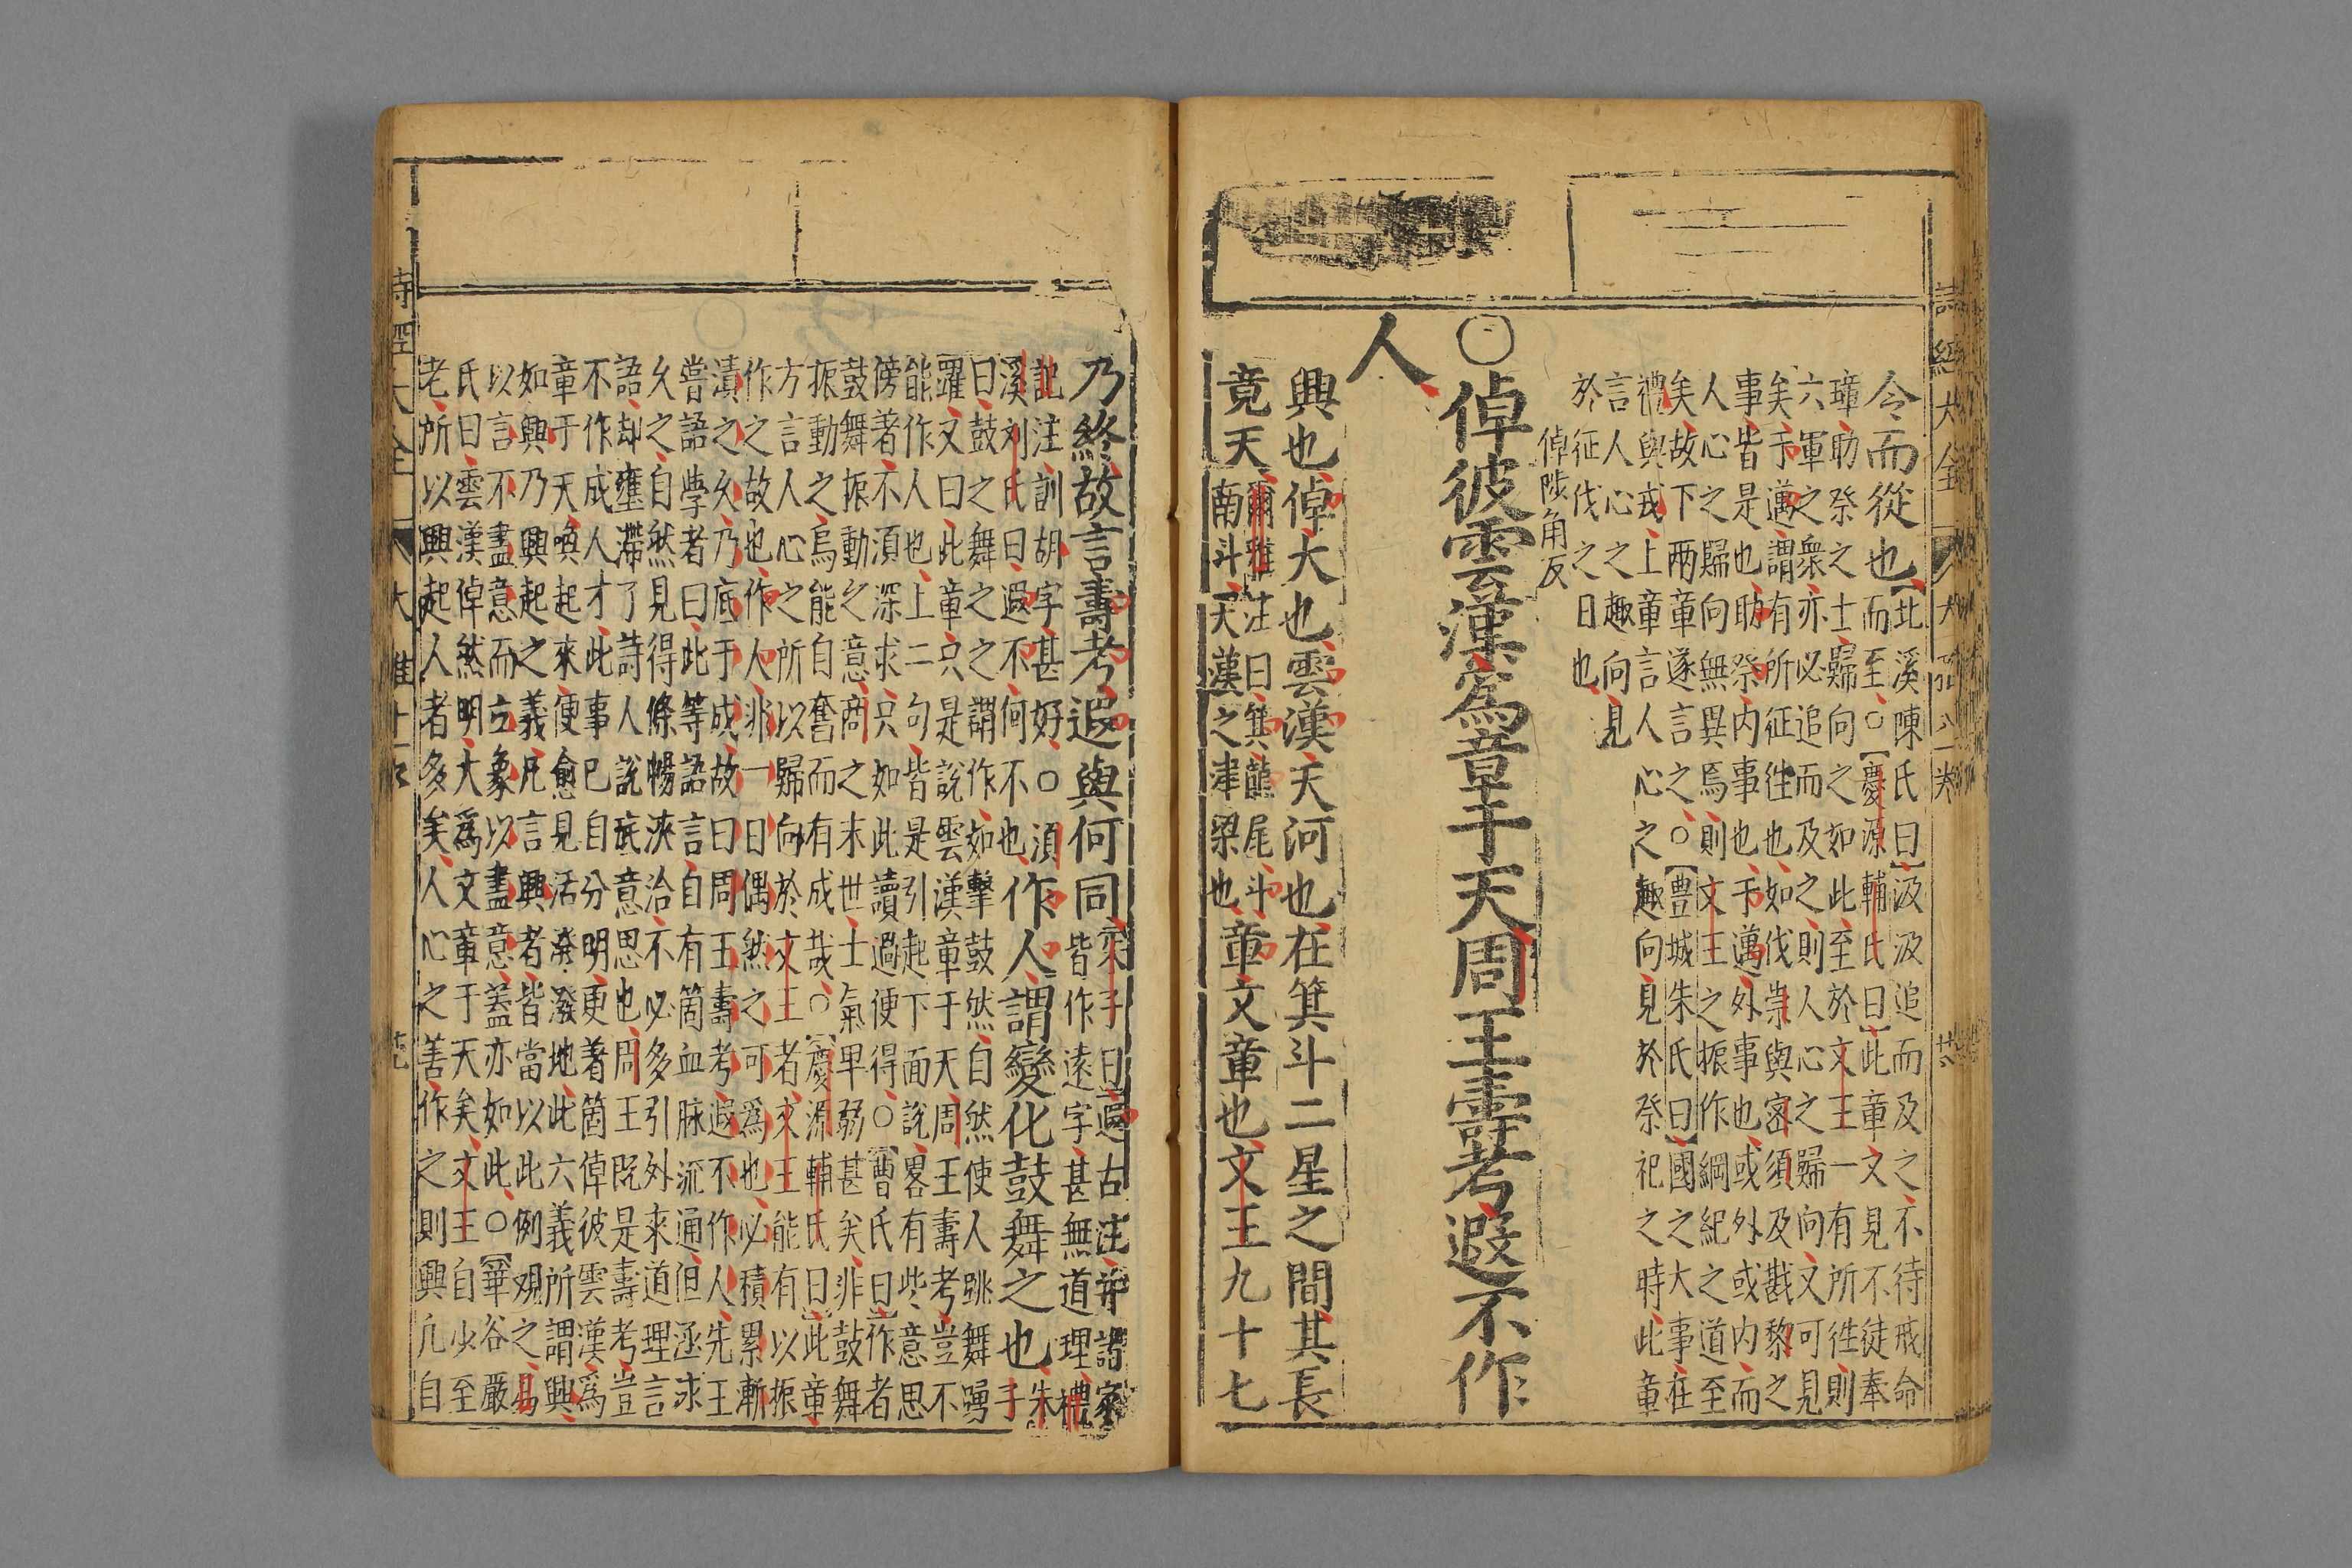 詩經大全
今而從也
北溪陳氏曰汲汲追而及之不待戒命
而至○慶源輔氏曰此章文見不徒奉
璋助祭之士歸向之如此至於文王一有所徃則
六軍之衆亦必追而及之則人心之歸向又可見
矣于邁謂有所征徃也如伐崇與密須及戡黎之
事皆是也助祭内事也于邁外事也或外或内而
人心之歸向無異焉則文王之振作綱紀之道至
矣故下兩章遂言之○豊城朱氏曰國之大事在
禮與戎上章言人心之趣向見於祭祀之時此章
言人心之趣向見
於征伐之日也
○倬彼雲漢爲章于天周王壽考遐不作
倬陟角反
人
興也倬大也雲漢天河也在箕斗二星之間其長
竟天
爾雅注曰箕龍尾斗
南斗天漢之津梁也
章文章也文王九十七
乃終故言壽考遐與何同
朱子曰遐古注並諸家
皆作遠字甚無道理禮
記注訓胡字甚好○須
溪刘氏曰遐不何不也
作人謂變化鼓舞之也
朱
子
曰鼓之舞之之謂作如擊鼓然自然使人跳舞踴
躍又曰此章只是說雲漢章于天周王壽考豈不
能作人也上二句皆是引起下面說畧有些意思
傍著不須深求只如此讀過便得○曹氏曰作者
鼓舞振動之意商之末世士氣卑弱甚矣非鼓舞
振動之烏能自奮而有成哉○慶源輔氏曰此章
方言人心之所以歸向於文王者文王能有以振
作之故也作人非一日偶然之可爲也必積累漸
漬之久乃底于成故曰周王壽考遐不作人先王
嘗語學者曰此等語言自有箇血脉流通但涵泳
久之自然見得條暢浹洽不必多引外來道理言
語却壅滯了詩人說底意思也周王既是壽考豈
不作成人才此事已自分明更著箇倬彼雲漢爲
章于天喚起來便愈見活潑潑地此六義所謂興
如興乃興起之義凡言興者皆當以此例觀之易
以言不盡意而立象以盡意蓋亦如此○華谷嚴
氏曰雲漢倬然明大爲文章于天矣文王自少至
老所以興起人者多矣人心之善作之則興凢自
詩經大全